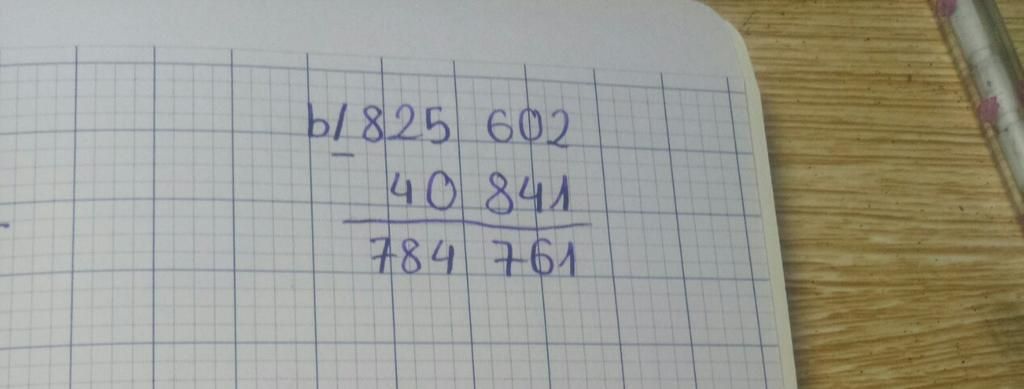 b/ 825 602
-
40 841
784 761